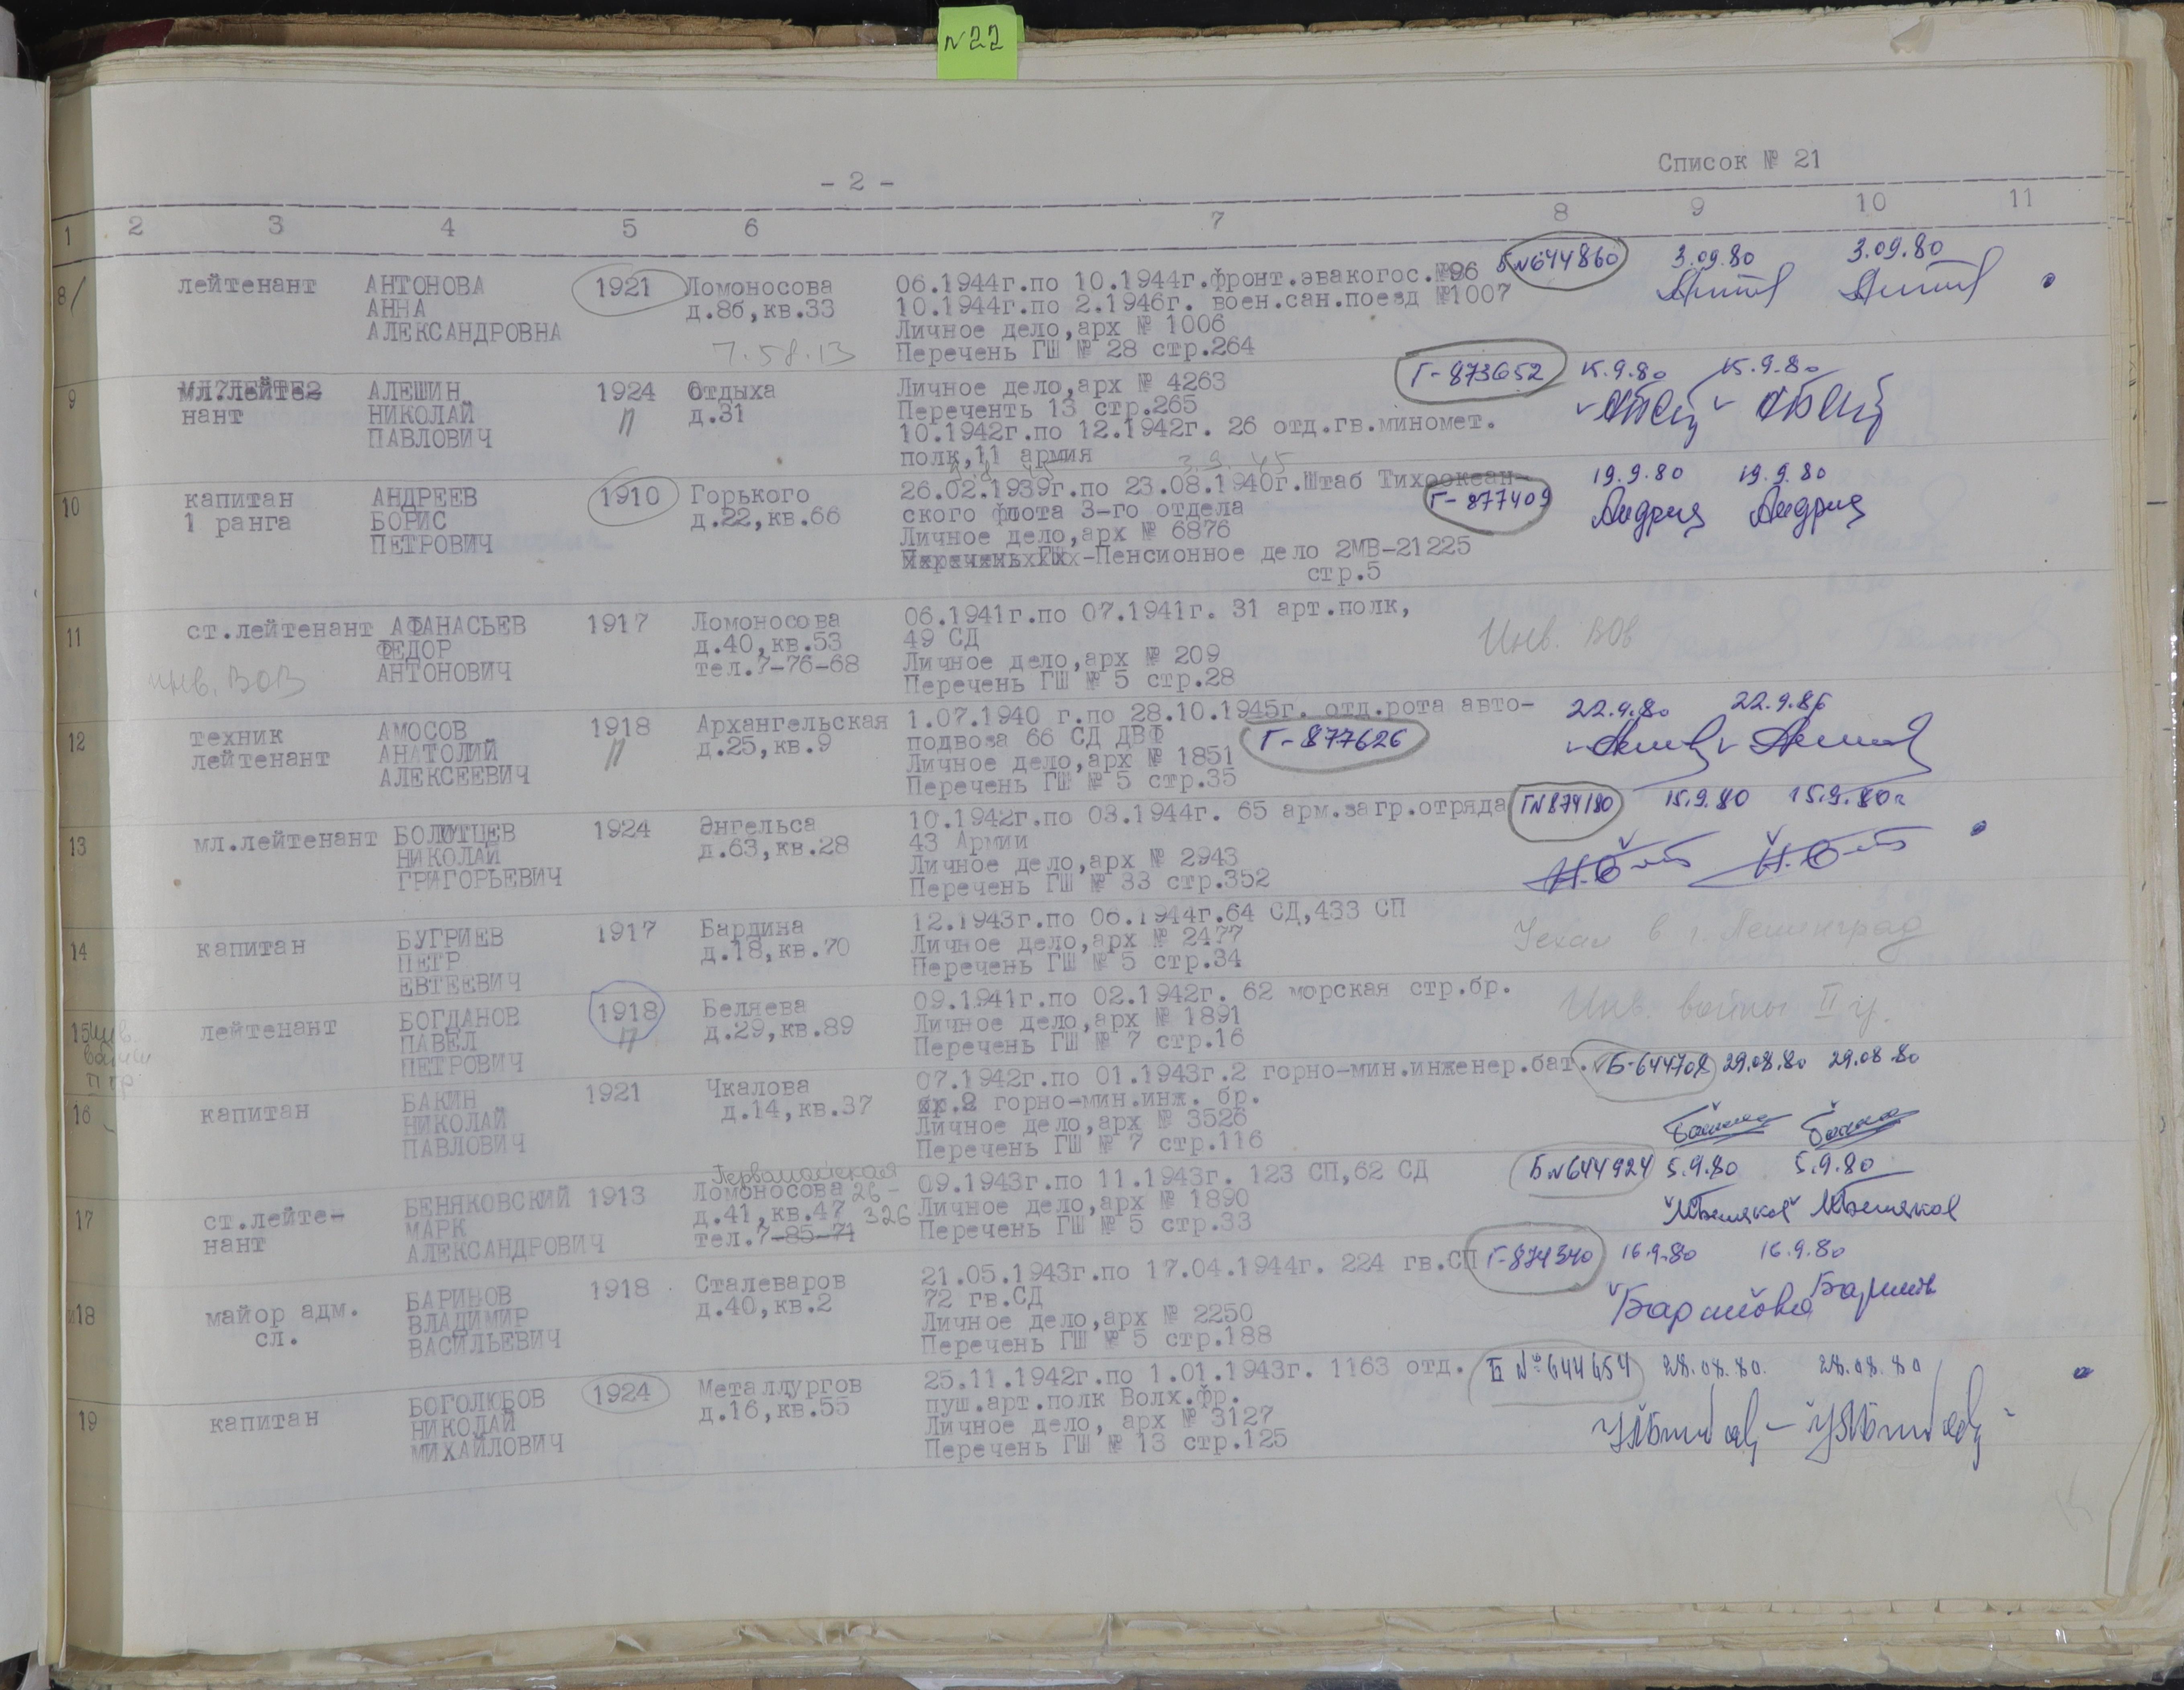 N22
Список № 21
- 2 -
1 2 3 4 5 6 7 8 9 10 11
8/ лейтенант АНТОНОВА 1921 Ломоносова 06.1944г.по 10.1944г.фронт.эвакогос.№96 Б№644860 3.09.80 3.09.80
АННА д.8б,кв.33 10.1944г.по 2.1946г. воен.сан.поезд №1007
АЛЕКСАНДРОВНА Личное дело,арх № 1006
7.58.13 Перечень ГШ № 28 стр.264
9 мл.лейте- АЛЕШИН 1924 Отдыха Личное дело,арх № 4263 Г-873652 15.9.80 15.9.80
нант НИКОЛАЙ П д.31 Переченть 13 стр.265
ПАВЛОВИЧ 10.1942г.по 12.1942г. 26 отд.гв.миномет.
полк,11 армия
3.9.45
10 капитан АНДРЕЕВ 1910 Горького 26.02.1939г.по 23.08.1940г.Штаб Тихоокеан- Г-877409 19.9.80 19.9.80
1 ранга БОРИС д.22,кв.66 ского флота 3-го отдела
ПЕТРОВИЧ Личное дело,арх № 6876
Перечень ГШ-Пенсионное дело 2МВ-21225
стр.5
11 ст.лейтенант АФАНАСЬЕВ 1917 Ломоносова 06.1941г.по 07.1941г. 31 арт.полк, Инв. ВОВ
ФЕДОР д.40,кв.53 49 СД
инв. ВОВ АНТОНОВИЧ тел.7-76-68 Личное дело,арх № 209
Перечень ГШ № 5 стр.28
12 техник АМОСОВ 1918 Архангельская 1.07.1940 г.по 28.10.1945г. отд.рота авто- 22.9.80 22.9.80
лейтенант АНАТОЛИЙ П д.25,кв.9 подвоза 66 СД ДВФ Г-877626
АЛЕКСЕЕВИЧ Личное дело,арх № 1851
Перечень ГШ № 5 стр.35
13 мл.лейтенант БОЛОТЦЕВ 1924 Энгельса 10.1942г.по 03.1944г. 65 арм.загр.отряда Г№874180 15.9.80 15.9.80г
НИКОЛАЙ д.63,кв.28 43 Армии
ГРИГОРЬЕВИЧ Личное дело,арх № 2943
Перечень ГШ № 33 стр.352
14 капитан БУГРИЕВ 1917 Бардина 12.1943г.по 06.1944г.64 СД,433 СП Уехал в г. Ленинград
ПЕТР д.18,кв.70 Личное дело,арх № 2477
ЕВТЕЕВИЧ Перечень ГШ № 5 стр.34
15 инв. войны II гр лейтенант БОГДАНОВ 1918 Беляева 09.1941г.по 02.1942г. 62 морская стр.бр. Инв. войны II гр.
ПАВЕЛ П д.29,кв.89 Личное дело,арх № 1891
ПЕТРОВИЧ Перечень ГШ № 7 стр.16
16 капитан БАКИН 1921 Чкалова 07.1942г.по 01.1943г.2 горно-мин.инженер.бат. Б-644708 29.08.80 29.08.80
НИКОЛАЙ д.14,кв.37 бр.2 горно-мин.инж. бр.
ПАВЛОВИЧ Личное дело,арх № 3526
Перечень ГШ № 7 стр.116
Первомайская
17 ст.лейте- БЕНЯКОВСКИЙ 1913 Ломоносова 26- 09.1943г.по 11.1943г. 123 СП,62 СД Б№644924 5.9.80 5.9.80
нант МАРК д.41,кв.47 326 Личное дело,арх № 1890
АЛЕКСАНДРОВИЧ тел.7-85-71 Перечень ГШ № 5 стр.33
18 майор адм. БАРИНОВ 1918 Сталеваров 21.05.1943г.по 17.04.1944г. 224 гв.СП Г-874340 16.9.80 16.9.80
сл. ВЛАДИМИР д.40,кв.2 72 гв.СД
ВАСИЛЬЕВИЧ Личное дело,арх № 2250
Перечень ГШ № 5 стр.188
19 капитан БОГОЛЮБОВ 1924 Металлургов 25.11.1942г.по 1.01.1943г. 1163 отд. Б №644654 28.08.80. 28.08.80
НИКОЛАЙ д.16,кв.55 пуш.арт.полк Волх.фр.
МИХАЙЛОВИЧ Личное дело, арх № 3127
Перечень ГШ № 13 стр.125